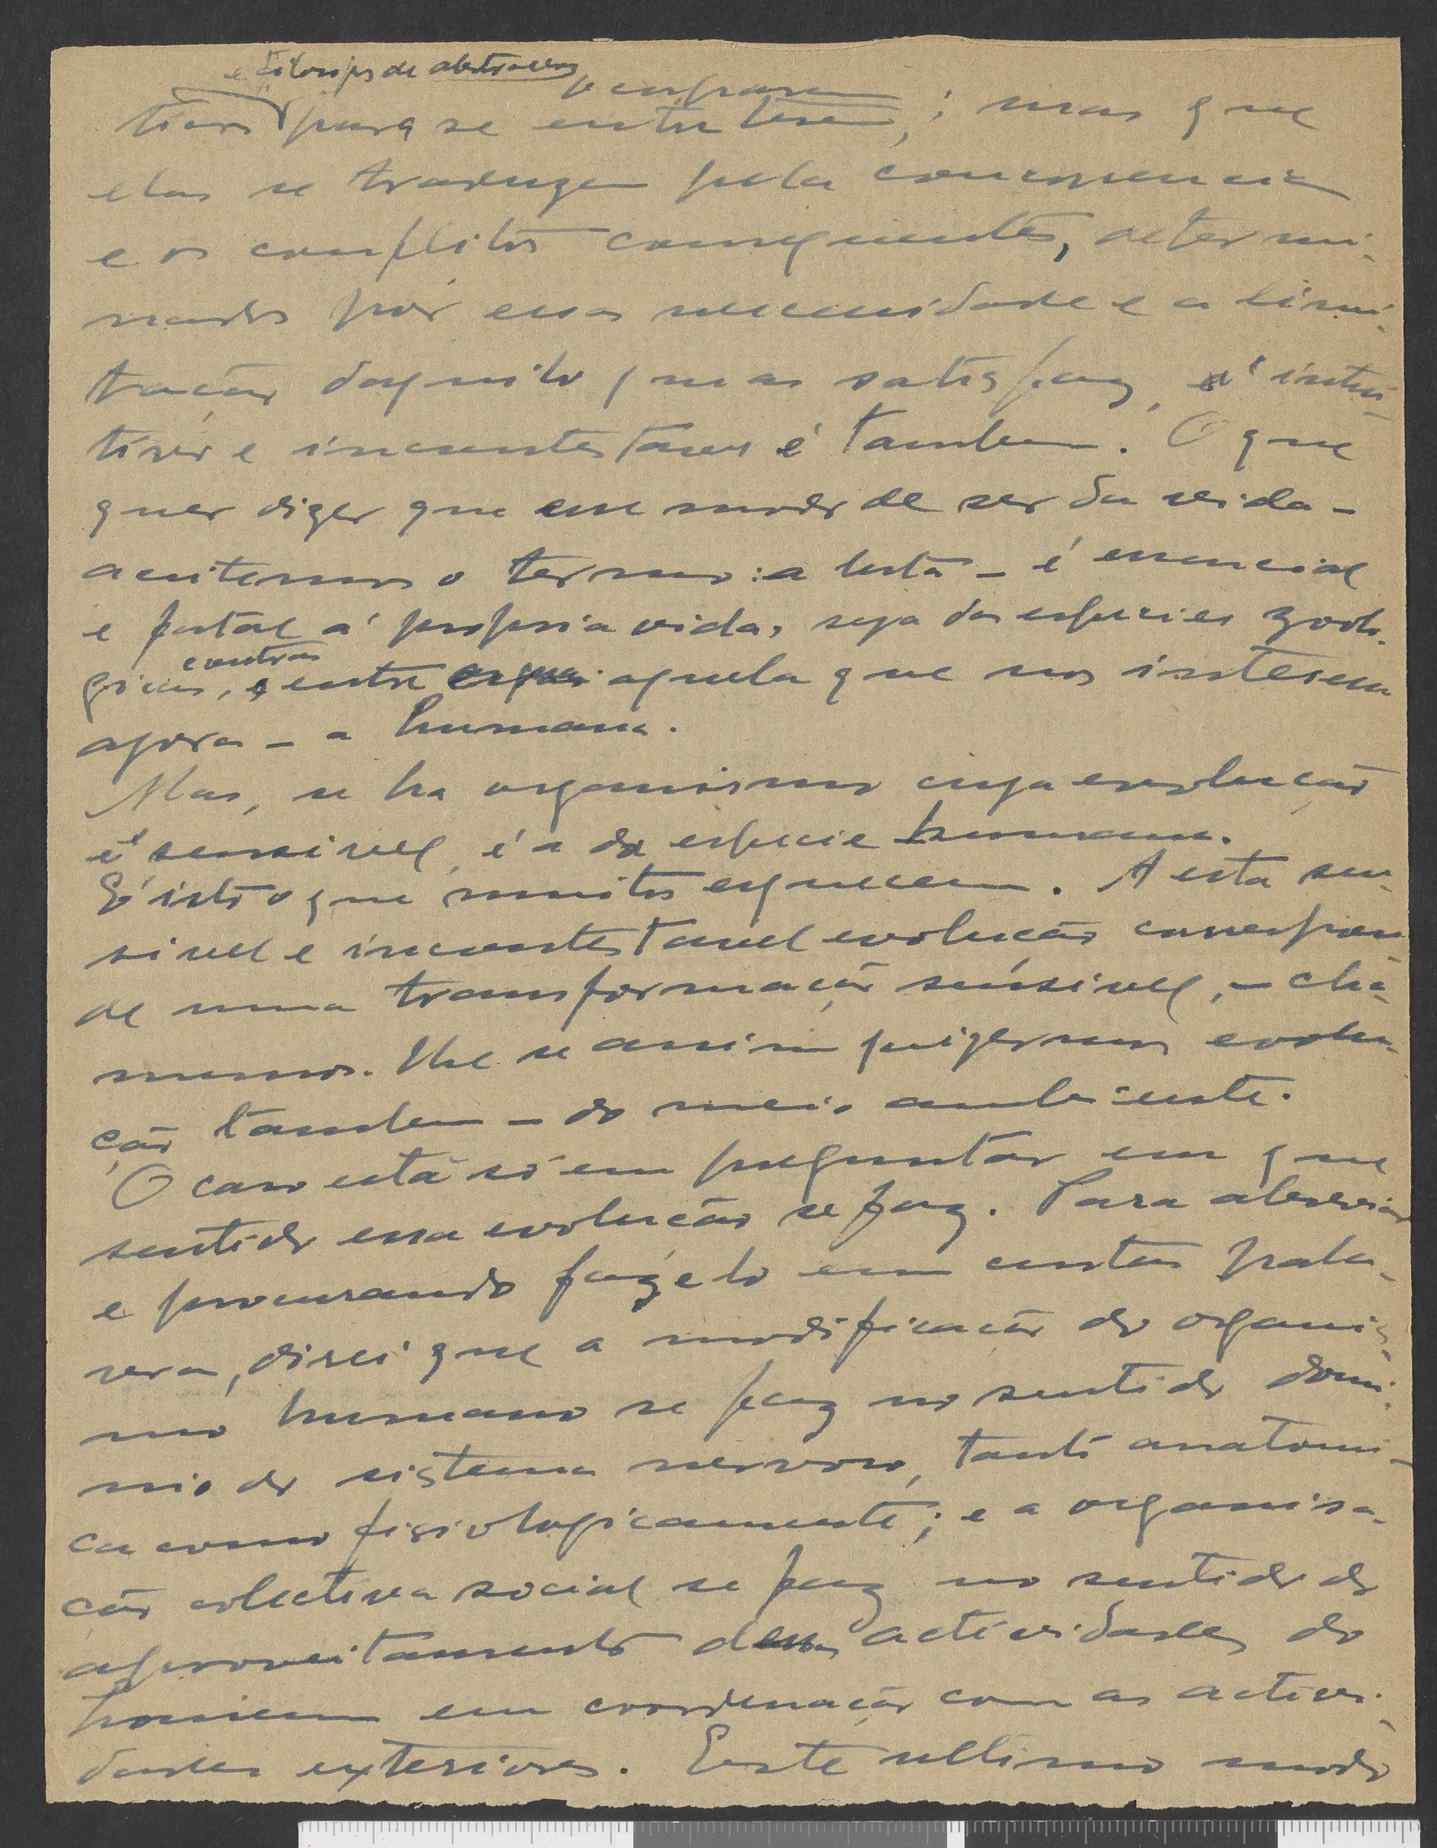 e filosofos de abstracções
ocuparem
para se entreterem; mas que
elas se traduzem pela concorrencia
e os conflitos consequentes, determi-
nados por essas necessidades e a limi-
tação daquilo que as satisfaz, é intui-
tivo e incontestavel é tambem. O que
quer dizer que esse modo de ser da vida -
aceitemos o termo: a luta - é essencial
e fatal á propria vida, seja das especies zoolo-
gicas, e entre aquela que nos interessa
agora - a humana.
Mas, se ha organismo cuja evolução
é sensivel, é a da especie humana.
É isto o que muitos esquecem. A esta sen-
sivel e incontestavel evolução correspon-
de uma transformação sensivel, - cha-
memos-lhe se assim quizermos evolu-
ção tambem - do meio ambiente.
O caso está só em preguntar em que
sentido essa evolução se faz. Para abreviar
e procurando faze-lo em curtas pala-
vras, direi que a modificação do organis-
mo humano se faz no sentido domi-
nio do sistema nervoso, tanto anatomi-
ca como fisiologicamente; e a organisa-
ção colectiva social se faz no sentido do
aproveitamento dessas actividades do
homem em coordenação com as activi-
dades exteriores. Este ultimo modo